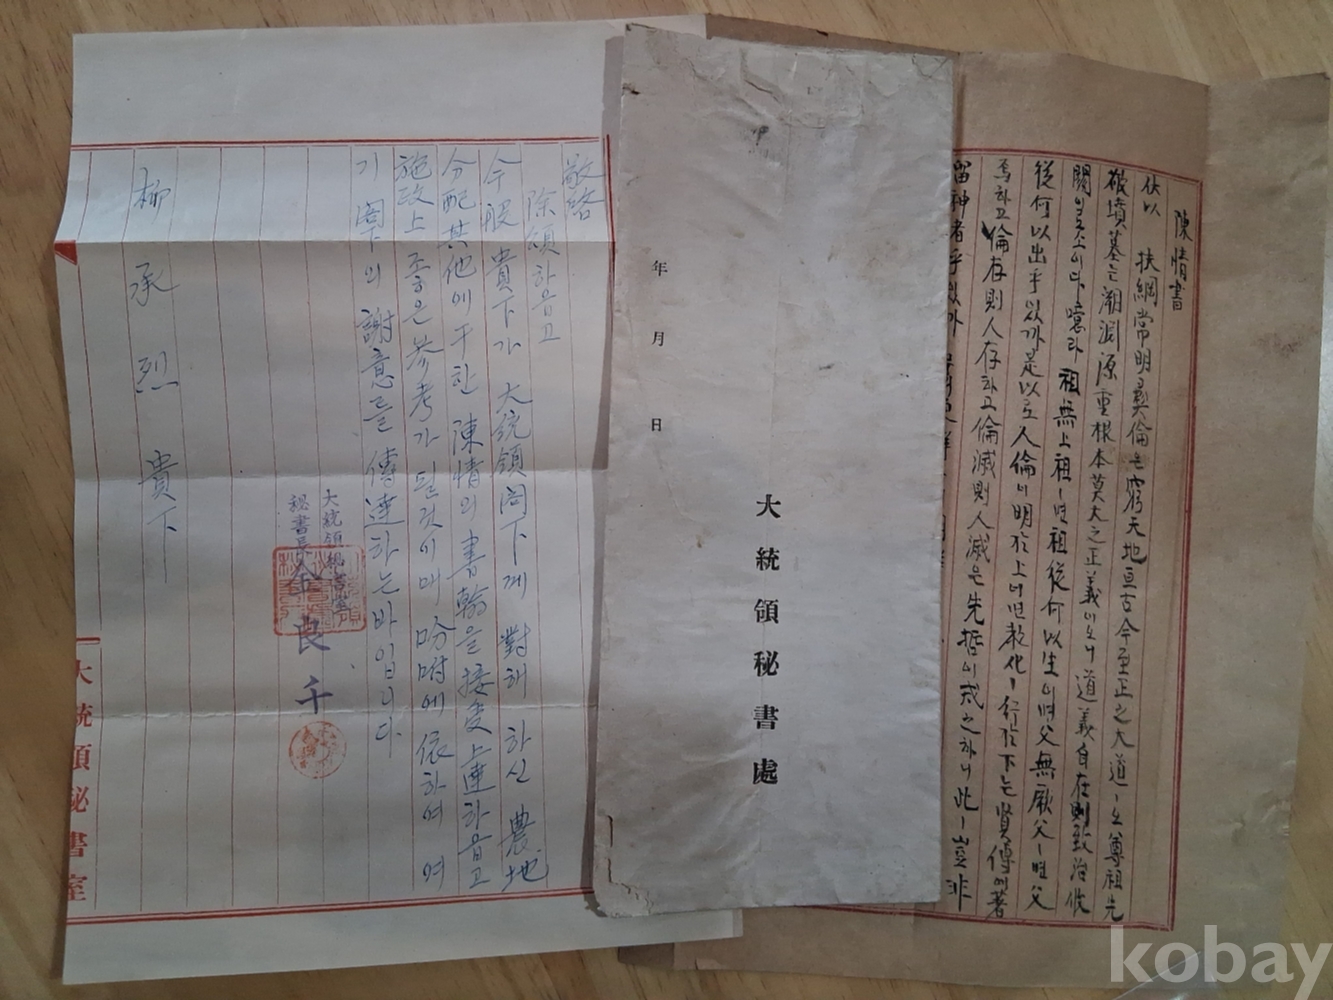 陳情書
伏以 扶綱常明彛倫은 窮天地亘古今至正之大道ㅣ오 尊祖先
墳墓는 溯淵源重根本莫大之正義이오니 道義自在則致治攸
關일소이다 噫라 祖無上祖ㅣ면 祖從何以生이며 父無厥父ㅣ면 父
從何以出乎잇가 是以로 人倫이 明於上이면 敎化ㅣ行於下는 賢傳에 著
焉하고 倫存則人存하고 倫滅則人滅은 先哲이 戒之하니 此ㅣ豈非
留神者乎잇가
年 月 日
大統領秘書處
敬啓
除煩하옵고
今般 貴下가 大統領閣下게 對해 하신 農地
分配其他에 干한 陳情의 書翰을 接受上達하옵고
施政上 좋은 參考가 될것이매 吩咐에 依하여 여
기 閣下의 謝意를 傳達하는바입니다.
大統領秘書室
秘書長 高良千
柳承烈 貴下
大統領秘書室
kobay